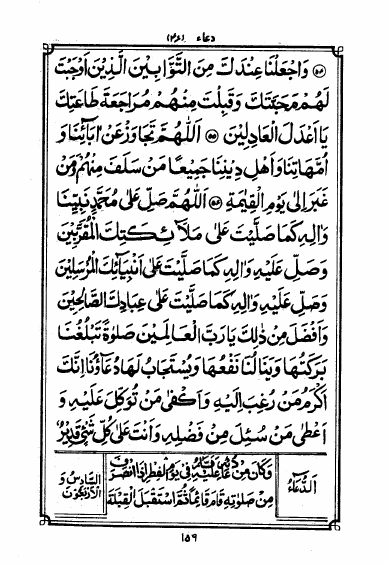 دعاء
وَاجْعَلْنَا عِنْدَكَ مِنَ التَّوَّابِيْنَ الَّذِيْنَ اَوْجَبْتَ
لَهُمْ مَحَبَّتَكَ وَقَبِلْتَ مِنْهُمْ مُرَاجَعَةَ طَاعَتِكَ
يَا اَعْدَلَ الْعَادِلِيْنَ اَللّٰهُمَّ تَجَاوَزْ عَنْ اٰبَآئِنَا وَ
اُمَّهَاتِنَا وَاَهْلِ دِيْنِنَا جَمِيْعًا مَنْ سَلَفَ مِنْهُمْ وَمَنْ
غَبَرَ اِلٰى يَوْمِ الْقِيٰمَةِ اَللّٰهُمَّ صَلِّ عَلٰى مُحَمَّدٍ نَبِيِّنَا
وَاٰلِهٖ كَمَا صَلَّيْتَ عَلٰى مَلَآئِكَتِكَ الْمُقَرَّبِيْنَ
وَصَلِّ عَلَيْهِ وَاٰلِهٖ كَمَا صَلَّيْتَ عَلٰى اَنْبِيَآئِكَ الْمُرْسَلِيْنَ
وَصَلِّ عَلَيْهِ وَاٰلِهٖ كَمَا صَلَّيْتَ عَلٰى عِبَادِكَ الصَّالِحِيْنَ
وَاَفْضَلَ مِنْ ذٰلِكَ يَا رَبَّ الْعَالَمِيْنَ صَلٰوةً تَبْلُغُنَا
بَرَكَتُهَا وَيَنَالُنَا نَفْعُهَا وَيُسْتَجَابُ لَهَا دُعَآؤُنَا اِنَّكَ
اَكْرَمُ مَنْ رُغِبَ اِلَيْهِ وَاَكْفٰى مَنْ تُوُكِّلَ عَلَيْهِ وَ
اَعْطٰى مَنْ سُئِلَ مِنْ فَضْلِهٖ وَاَنْتَ عَلٰى كُلِّ شَيْءٍ قَدِيْرٌ
اَلدُّعَآءُ
السَّادِسُ وَ
الْاَرْبَعُوْنَ
وَكَانَ مِنْ دُعَآئِهٖ عَلَيْهِ السَّلَامُ فِيْ يَوْمِ الْفِطْرِ اِذَا انْصَرَفَ
مِنْ صَلٰوتِهٖ قَامَ قَآئِمًا ثُمَّ اسْتَقْبَلَ الْقِبْلَةَ
١٥٩